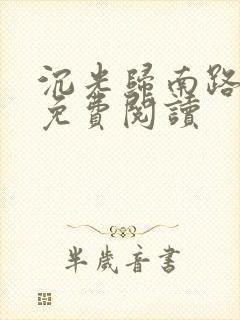 沉光歸南路
免費閱讀
半歲音書